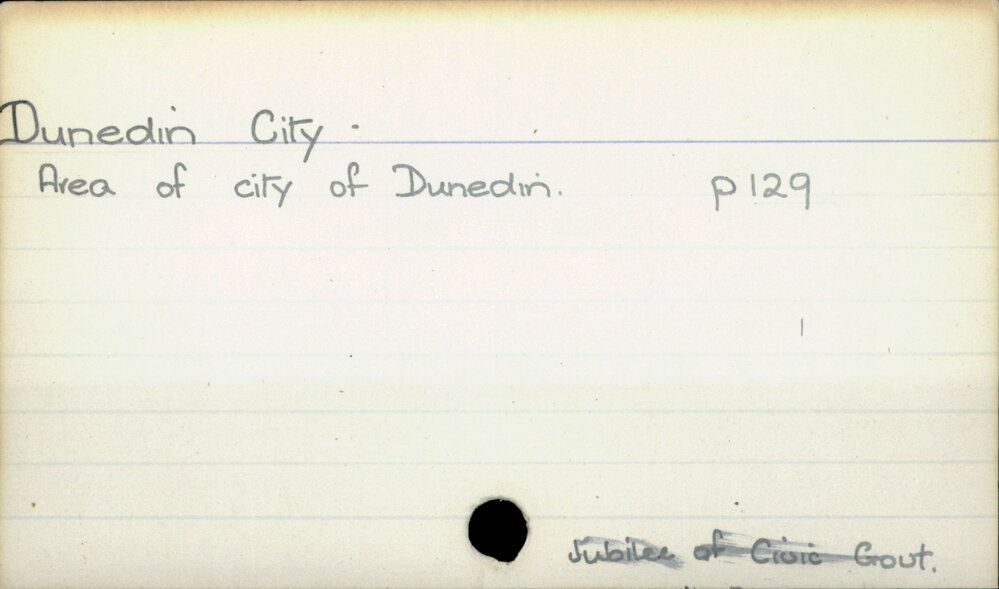 Dunedin City.
Area of city of Dunedin. p129
Jubilee of Civic Govt.